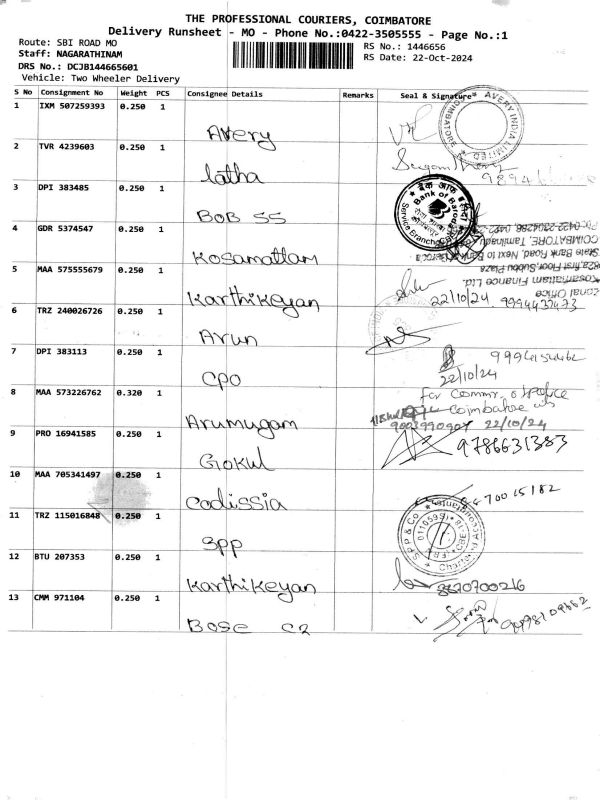 THE PROFESSIONAL COURIERS, COIMBATORE
Delivery Runsheet - MO - Phone No.:0422-3505555 - Page No.:1
Route: SBI ROAD MO
Staff: NAGARATHINAM
DRS No.: DCJB144665601
Vehicle: Two Wheeler Delivery
RS No.: 1446656
RS Date: 22-Oct-2024
S No Consignment No Weight PCS Consignee Details Remarks Seal & Signature
1 IXM 507259393 0.250 1
Avery
AVERY INDIA LIMITED * COIMBATORE *
2 TVR 4239603 0.250 1
latha
3 DPI 383485 0.250 1
BOB SS
बैंक ऑफ बड़ौदा
Bank of Baroda
Service Branch
4 GDR 5374547 0.250 1
Kosamattam
Zonal Office
Kosamattam Finance Ltd.
First Floor, Subbu Plaza
State Bank Road, Next to Bank of Baroda
COIMBATORE, Tamilnadu
5 MAA 575555679 0.250 1
Karthikeyan
22/10/24
6 TRZ 240026726 0.250 1
Arun
7 DPI 383113 0.250 1
CPO
22/10/24
8 MAA 573226762 0.320 1
Arumugam
Coimbatore
22/10/24
9 PRO 16941585 0.250 1
Gokul
9786631383
10 MAA 705341497 0.250 1
Codissia
11 TRZ 115016848 0.250 1
SPP
S.P.P & Co
Chartered Accountants
12 BTU 207353 0.250 1
Karthikeyan
13 CMM 971104 0.250 1
Bose C2